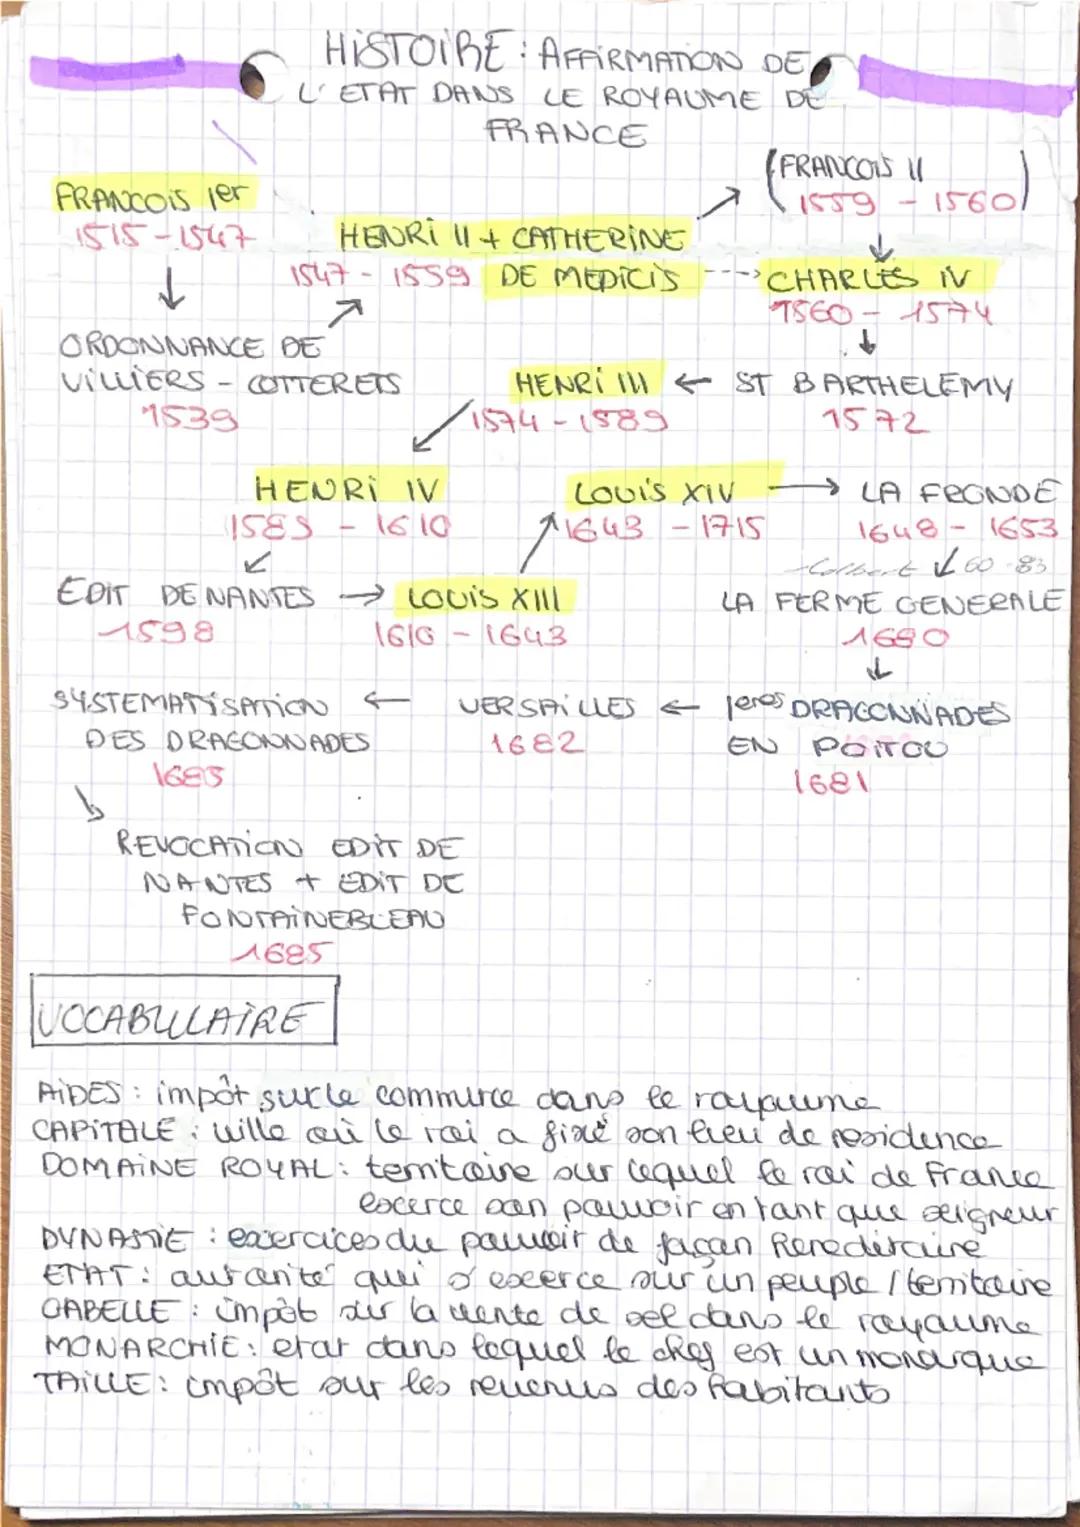 HiSTOiRE : AFFiRMATiON DE
L'ETAT DANS LE ROYAUME DE
FRANCE
FRANCOiS 1er
1515 - 1547
(FRANCOiS II
1559 - 1560)
HENRi II + CATHERiNE
1547 - 1559 DE MEDiCiS
CHARLES IV
1560 - 1574
ORDONNANCE DE
ViLLiERS - COTTERETS
1539
HENRi III ← ST BARTHELEMY
1574 - 1589
1572
HENRi IV
1589 - 1610
LOUiS XIV → LA FRONDE
1643 - 1715
1648 - 1653
Colbert ↓ 60-83
EDiT DE NANTES → LOUiS XIII
1598
1610 - 1643
LA FERME GENERALE
1680
SYSTEMATiSATiON ← VERSAiLLES ← 1eres DRAGONNADES
DES DRAGONNADES
1682
EN POiTOU
1685
1681
REVOCATiON EDiT DE
NANTES + EDiT DE
FONTAiNEBLEAU
1685
VOCABULAiRE
AiDES : impôt sur le commerce dans le royaume
CAPiTALE : ville où le roi a fixé son lieu de residence
DOMAiNE ROYAL : territoire sur lequel le roi de France
exerce son pouvoir en tant que seigneur
DYNASTiE : exercices du pouvoir de façon héréditaire
ETAT : autorité qui s'exerce sur un peuple / territoire
GABELLE : impôt sur la vente de sel dans le royaume
MONARCHiE : etat dans lequel le chef est un monarque
TAiLLE : impôt sur les revenus des habitants